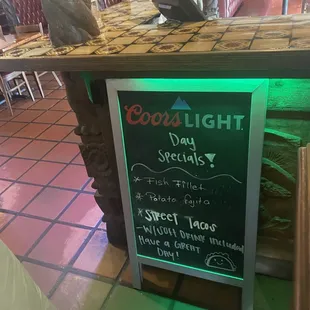 Coors LIGHT
Coors LIGHT
Day
Specials!
* Fish Fillet
* Potato
* Street Tacos
- w/ Soft Drink included
Have a Great
Day!